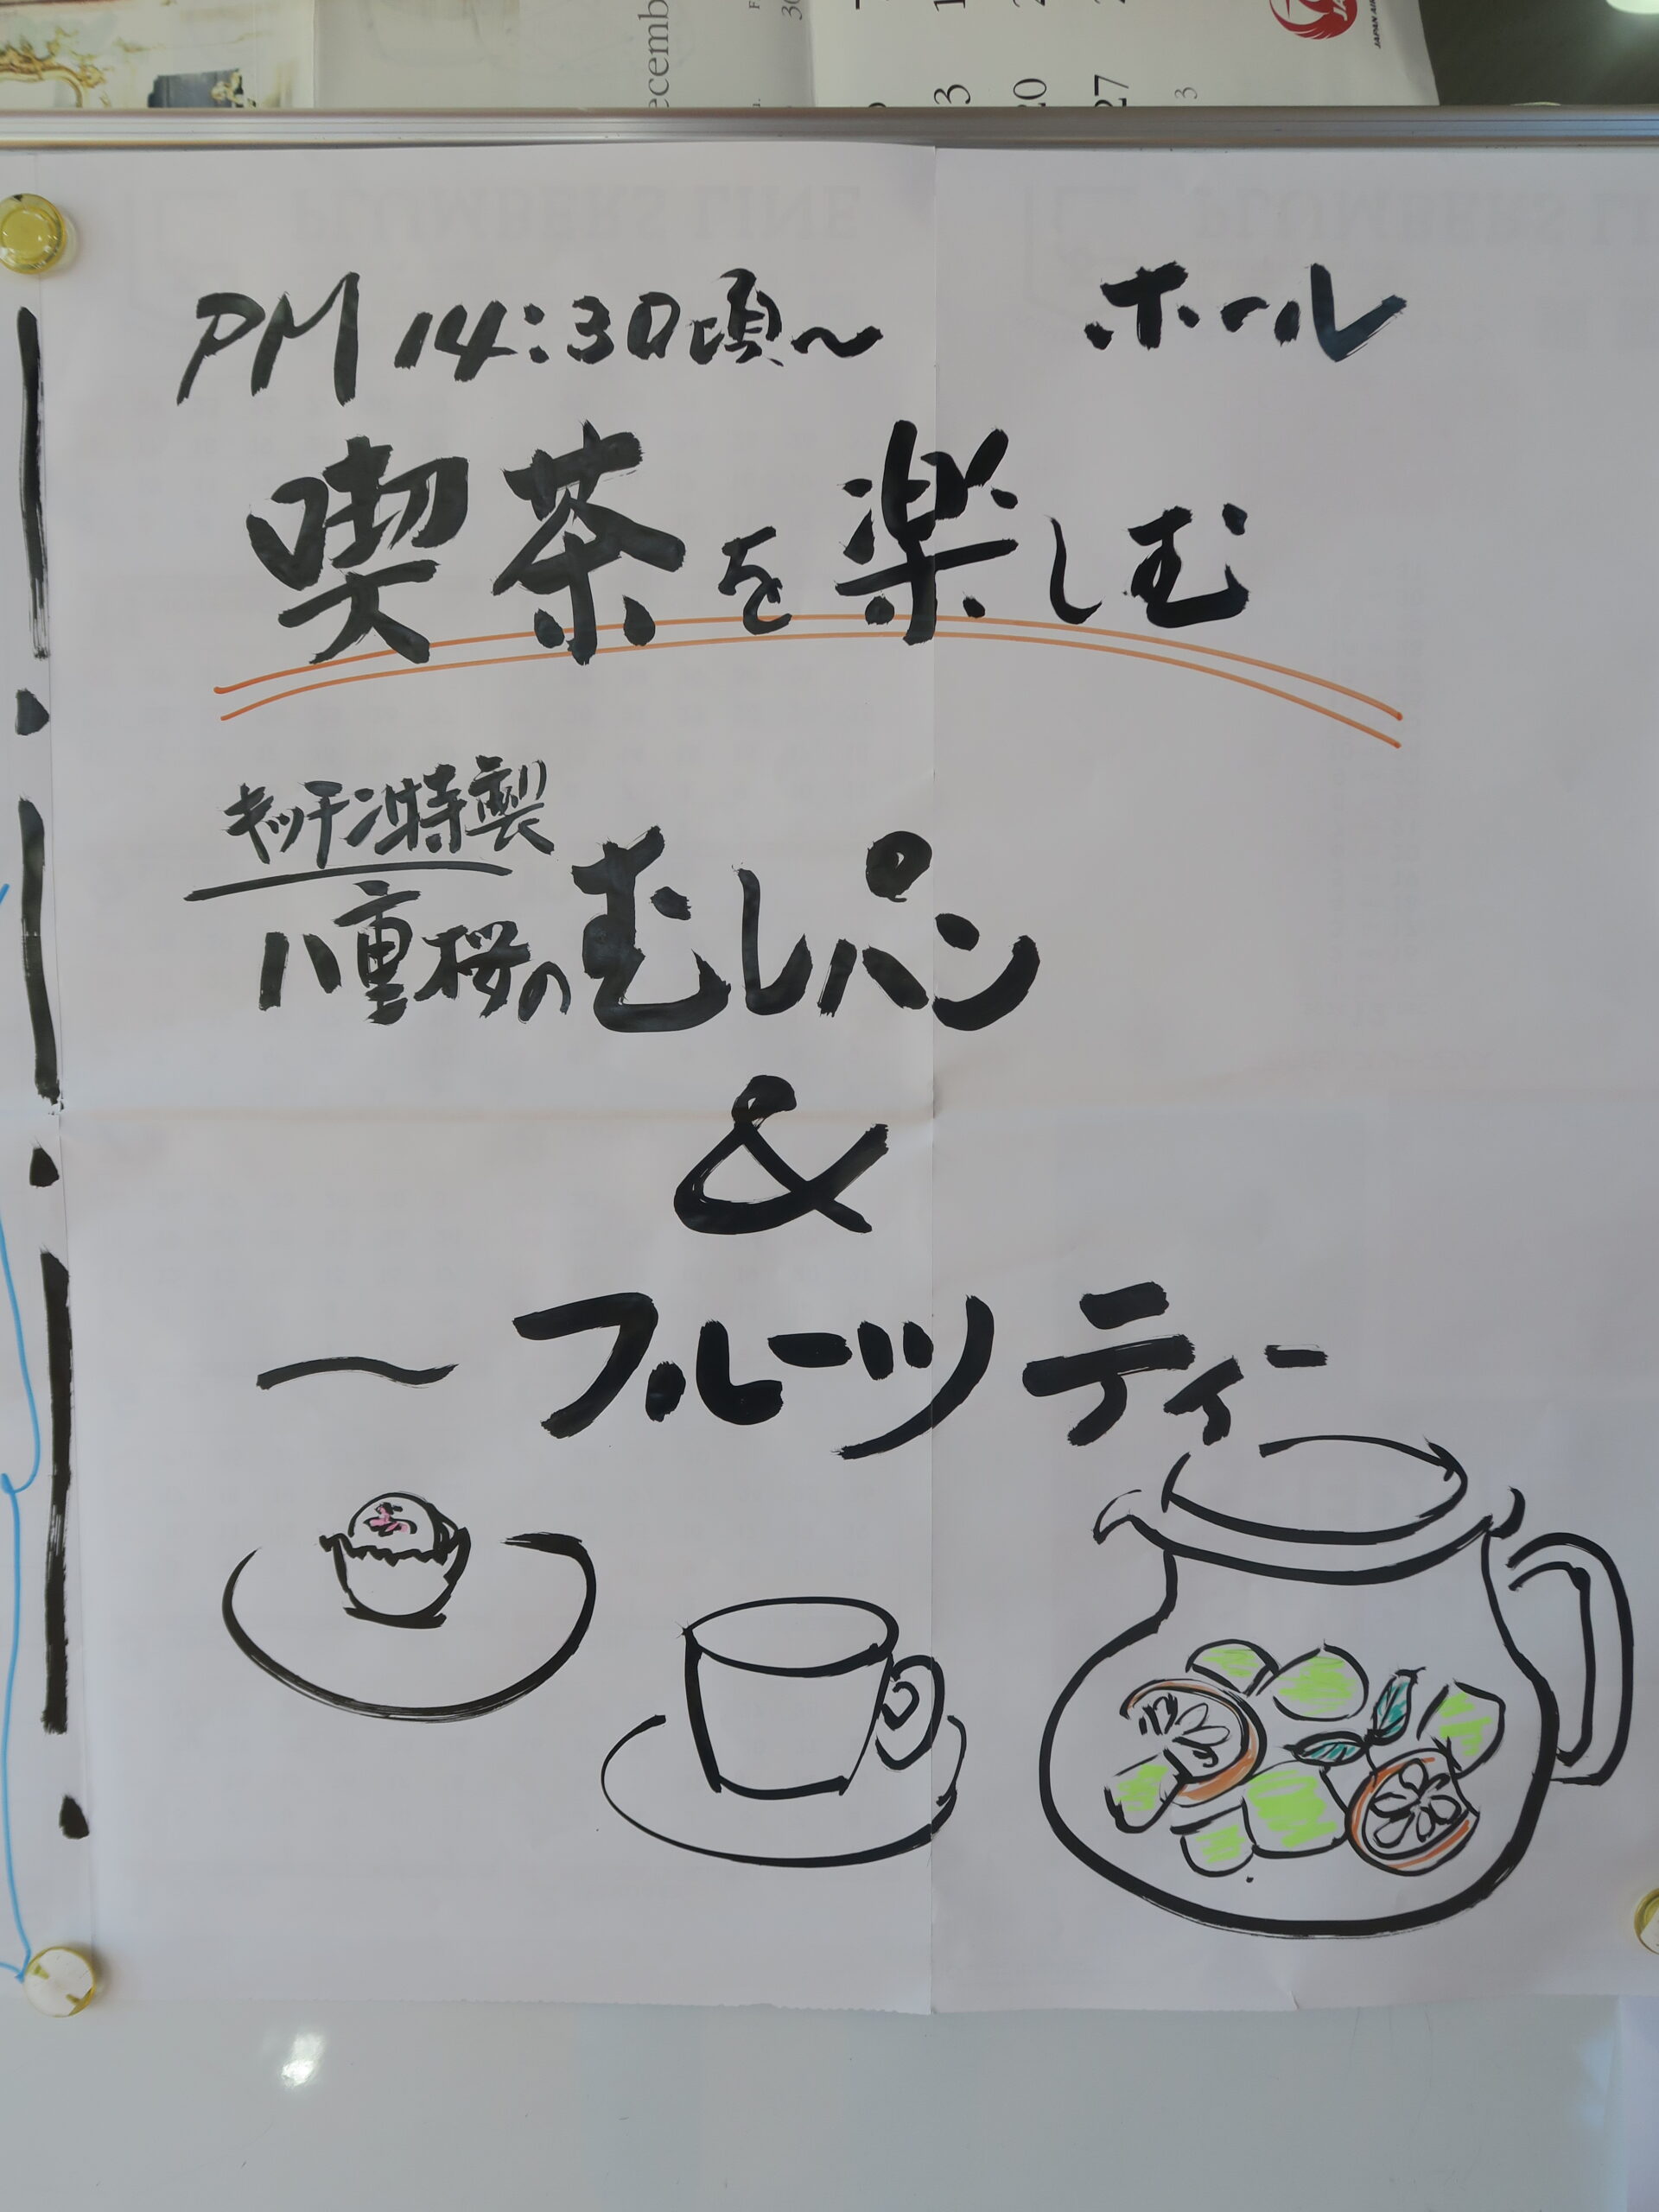 ecemb
30
13
20
27
3
JAPAN AI
PM 14:30頃〜 ホール
喫茶を楽しむ
キッチン特製
八重桜のむしパン
&
〜フルーツティー